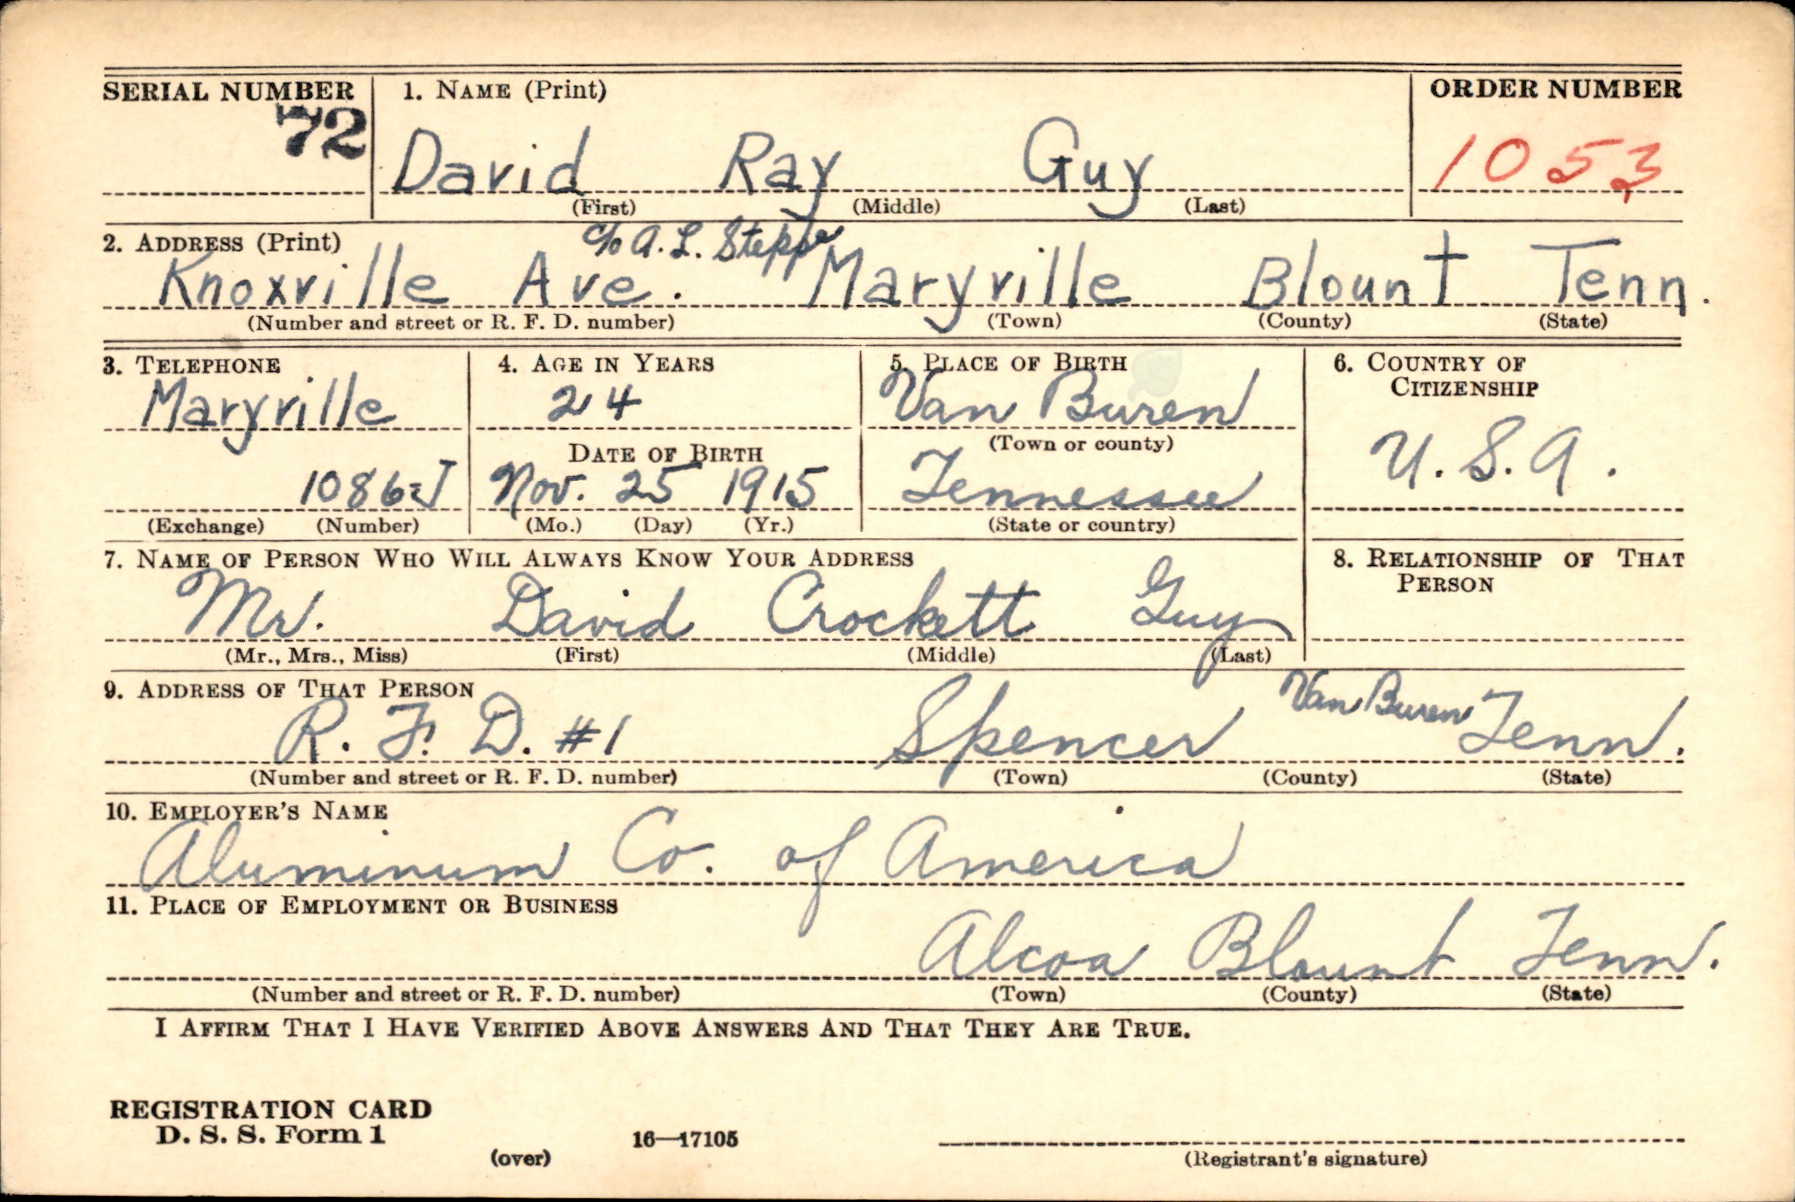 SERIAL NUMBER 1. NAME (Print) ORDER NUMBER
72 David Ray Guy 1053
(First) (Middle) (Last)
2. ADDRESS (Print) c/o A. L. Steppe
Knoxville Ave. Maryville Blount Tenn.
(Number and street or R. F. D. number) (Town) (County) (State)
3. TELEPHONE 4. AGE IN YEARS 5. PLACE OF BIRTH 6. COUNTRY OF
CITIZENSHIP
Maryville 24 Van Buren
(Town or county)
DATE OF BIRTH U. S. A.
1086-J Nov. 25 1915 Tennessee
(Exchange) (Number) (Mo.) (Day) (Yr.) (State or country)
7. NAME OF PERSON WHO WILL ALWAYS KNOW YOUR ADDRESS 8. RELATIONSHIP OF THAT
PERSON
Mr. David Crockett Guy
(Mr., Mrs., Miss) (First) (Middle) (Last)
9. ADDRESS OF THAT PERSON
R. F. D. #1 Spencer Van Buren Tenn.
(Number and street or R. F. D. number) (Town) (County) (State)
10. EMPLOYER'S NAME
Aluminum Co. of America
11. PLACE OF EMPLOYMENT OR BUSINESS
Alcoa Blount Tenn.
(Number and street or R. F. D. number) (Town) (County) (State)
I AFFIRM THAT I HAVE VERIFIED ABOVE ANSWERS AND THAT THEY ARE TRUE.
REGISTRATION CARD
D. S. S. Form 1 16—17105
(over) (Registrant's signature)